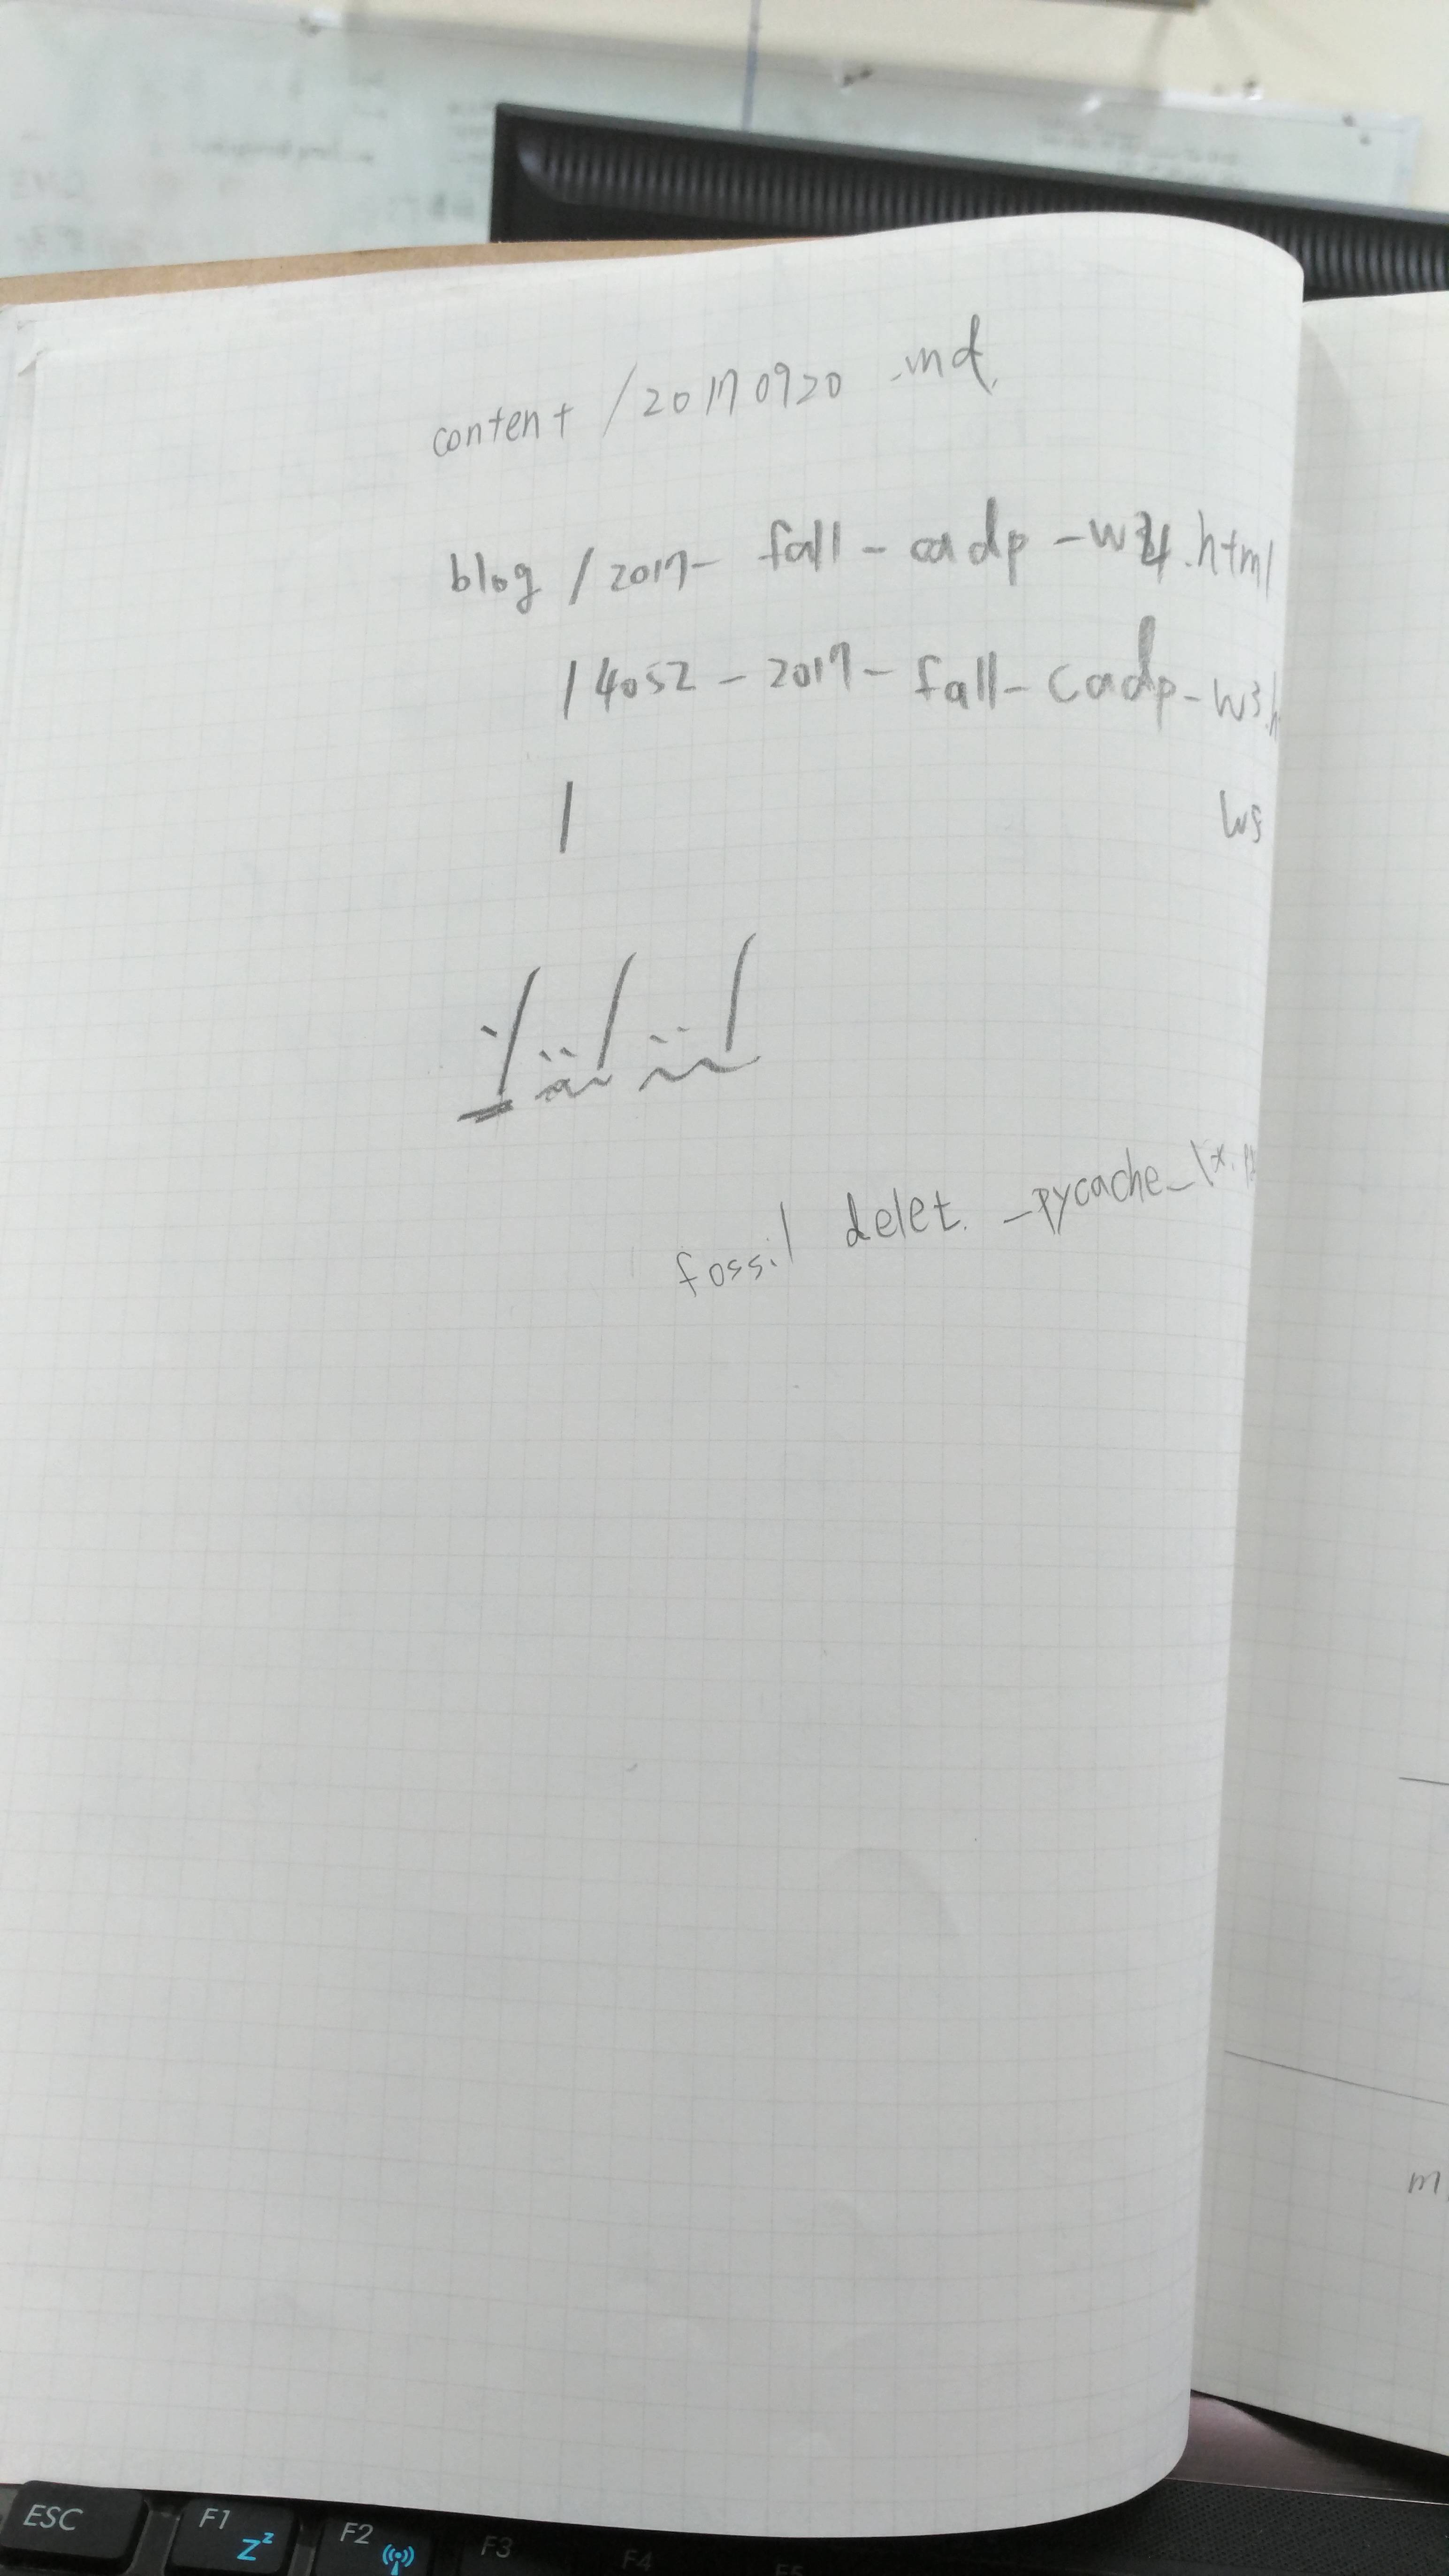 content /20170920 .md
blog /2017- fall - cadp -w4.html
/ 4052 - 2017 - fall - cadp - w3.h
/ w5
./../../
fossil delet. _pycache_\*.
m
ESC F1 Zz F2 F3 F4 F5